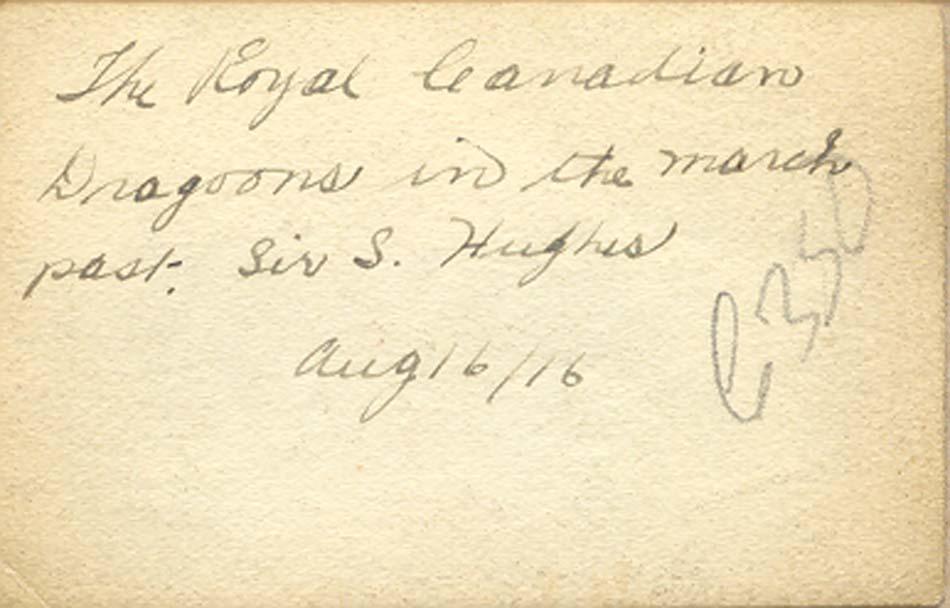 The Royal Canadian
Dragoons in the march
past. Sir S. Hughes
Aug 16/16